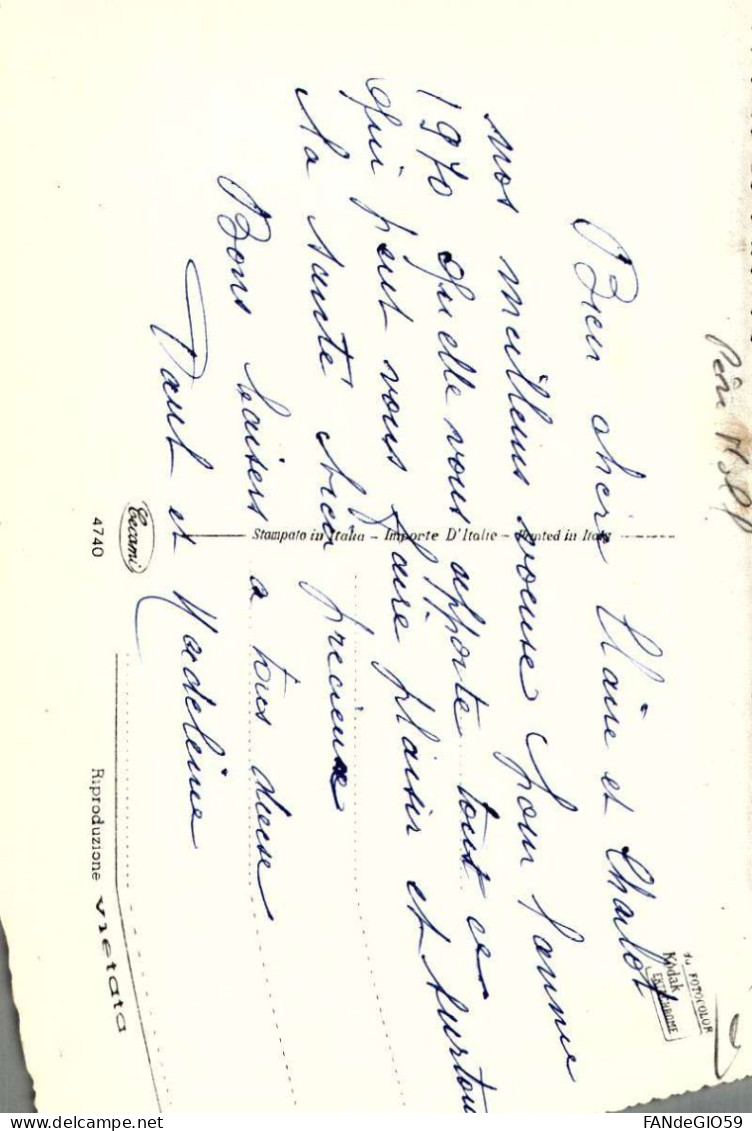 Bien chère Claire et Charlot
nos meilleurs voeuse pour l'année
1970 quelle vous apporte tout ce
qui peut vous faire plaisir et surtou
la santé bien precieuse
Bons baisers a tous deuse
Paul et Madeleine
Stampato in Italia - Importé D'Italie - Printed in Italy
Cecami
4740
Riproduzione vietata
da FOTOCOLOR
Kodak
EKTACHROME
Père
FANdeGIO59